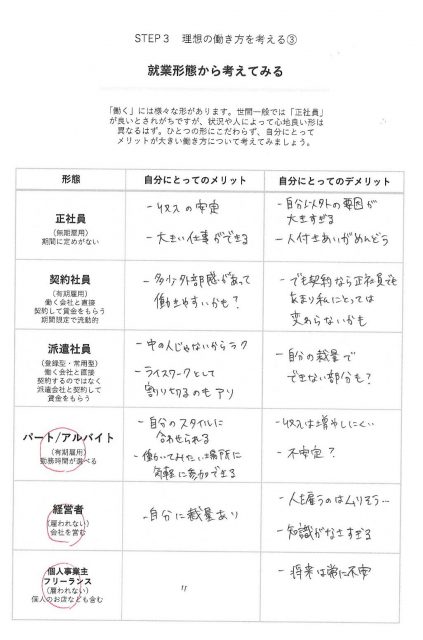 STEP３　理想の働き方を考える③
就業形態から考えてみる
「働く」には様々な形があります。世間一般では「正社員」
が良いとされがちですが、状況や人によって心地良い形は
異なるはず。ひとつの形にこだわらず、自分にとって
メリットが大きい働き方について考えてみましょう。
形態
自分にとってのメリット
自分にとってのデメリット
正社員
（無期雇用）
期間に定めがない
- 収入の安定
- 大きい仕事ができる
- 自分以外の要因が
大きすぎる
- 人付きあいがめんどう
契約社員
（有期雇用）
働く会社と直接
契約して賃金をもらう
期間限定で流動的
- 多少外部感があって
働きやすいかも？
- でも契約なら正社員でも
あまり私にとっては
変わらないかも
派遣社員
（登録型・常用型）
働く会社と直接
契約するのではなく
派遣会社と契約して
賃金をもらう
- 中の人じゃないからラク
- ライスワークとして
割り切るのもアリ
- 自分の裁量で
できない部分も？
パート/アルバイト
（有期雇用）
勤務時間が選べる
- 自分のスタイルに
合わせられる
- 働いてみたい場所に
気軽に参加できる
- 収入は増やしにくい
- 不安定？
経営者
（雇われない）
会社を営む
- 自分に裁量あり
- 人を雇うのはムリそう…
- 知識がなさすぎる
個人事業主
フリーランス
（雇われない）
個人のお店なども含む
〃
- 将来は常に不安